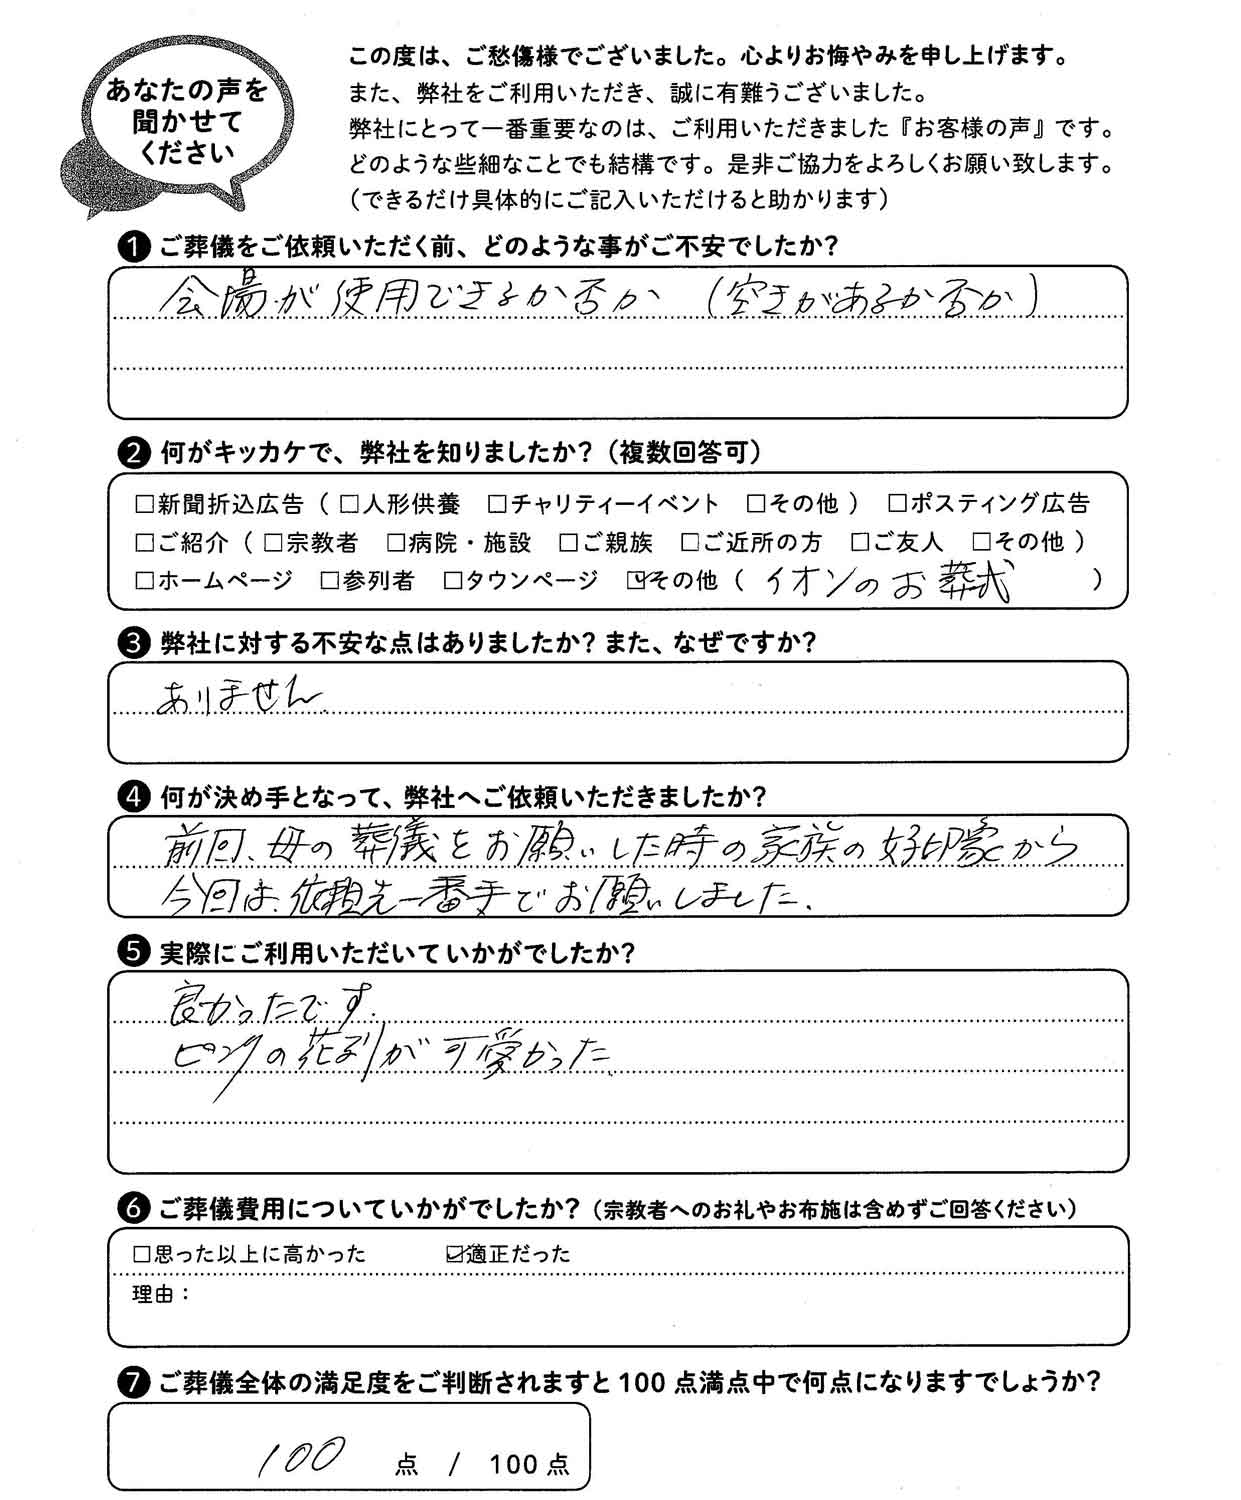 あなたの声を
聞かせて
ください
この度は、ご愁傷様でございました。心よりお悔やみを申し上げます。
また、弊社をご利用いただき、誠に有難うございました。
弊社にとって一番重要なのは、ご利用いただきました『お客様の声』です。
どのような些細なことでも結構です。是非ご協力をよろしくお願い致します。
（できるだけ具体的にご記入いただけると助かります）
❶ ご葬儀をご依頼いただく前、どのような事がご不安でしたか？
会場が使用できるか否か （空きがあるか否か）
❷ 何がキッカケで、弊社を知りましたか？（複数回答可）
□新聞折込広告（□人形供養 □チャリティーイベント □その他） □ポスティング広告
□ご紹介（□宗教者 □病院・施設 □ご親族 □ご近所の方 □ご友人 □その他）
□ホームページ □参列者 □タウンページ ☑その他（イオンのお葬式）
❸ 弊社に対する不安な点はありましたか？また、なぜですか？
ありません
❹ 何が決め手となって、弊社へご依頼いただきましたか？
前回、母の葬儀をお願いした時の家族の好印象から
今回は、依頼先一番手でお願いしました。
❺ 実際にご利用いただいていかがでしたか？
良かったです。
ピンクの花祭りが可愛かった
❻ ご葬儀費用についていかがでしたか？（宗教者へのお礼やお布施は含めずご回答ください）
□思った以上に高かった ☑適正だった
理由：
❼ ご葬儀全体の満足度をご判断されますと100点満点中で何点になりますでしょうか？
100 点 / 100点